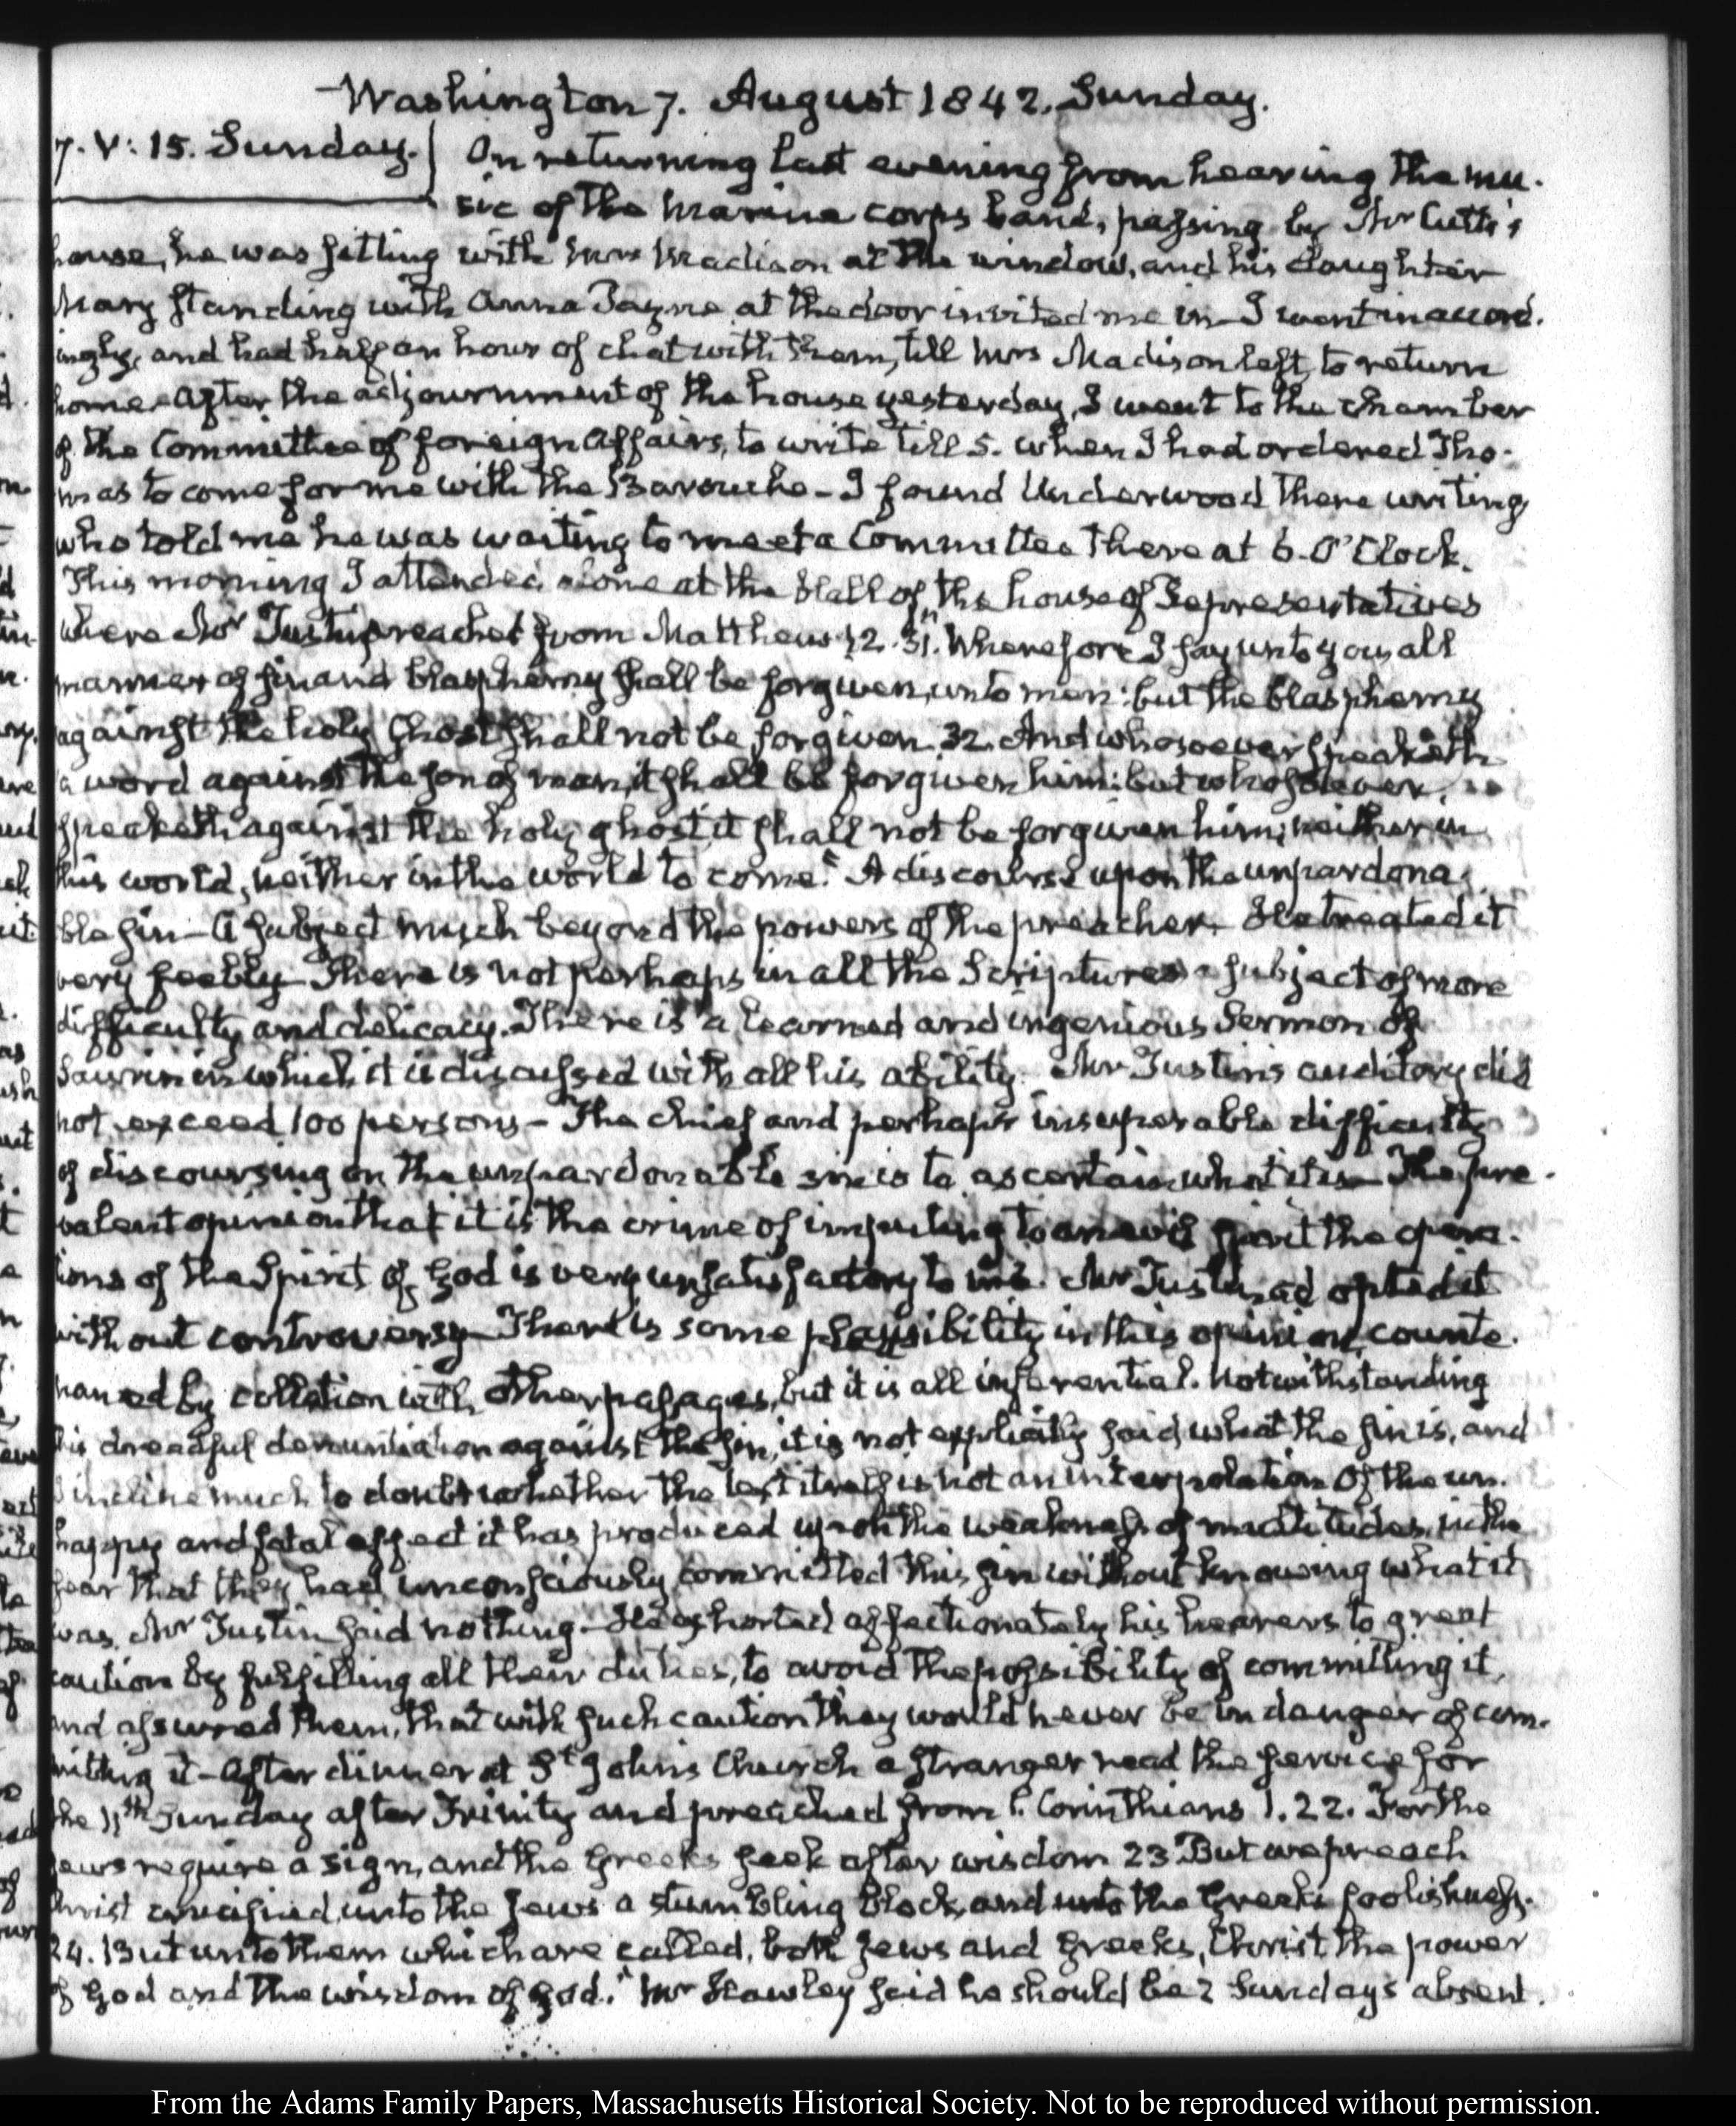 Washington 7. August 1842. Sunday.
7. V: 15. Sunday. On returning last evening from hearing the mu-
sic of the Marine corps band, passing by Mr Cutts's
house, he was sitting with Mrs Madison at the window, and his daughter
Mary standing with Anna Payne at the door invited me in— I went in accord-
ingly, and had half an hour of chat with them, till Mrs Madison left, to return
home. After the adjournment of the house yesterday, I went to the chamber
of the Committee of foreign Affairs, to write till 5. when I had ordered Tho-
mas to come for me with the Barouche— I found Underwood there writing,
who told me he was waiting to meet a Committee there at 6. O'Clock.
This morning I attended alone at the Hall of the house of Representatives
where Mr Tustin preached from Matthew 12. 31. "Wherefore I say unto you, all
manner of sin and blasphemy shall be forgiven, unto men: but the blasphemy
against the holy Ghost shall not be forgiven. 32. And whosoever speaketh
a word against the son of man, it shall be forgiven him: but whosoever
speaketh against the holy ghost it shall not be forgiven him; neither in
this world, neither in the world to come." A discourse upon the unpardona-
ble sin— A subject much beyond the powers of the preacher. He treated it
very feebly— There is not perhaps in all the Scriptures a subject of more
difficulty and delicacy. There is a learned and ingenious Sermon of
Saurin in which it is discussed with all his ability. Mr Tustin's auditory did
not exceed 100 persons— The chief and perhaps insuperable difficulty
of discoursing on the unpardonable sin is to ascertain what it is— The pre-
valent opinion that it is the crime of imputing to an evil spirit the opera-
tions of the Spirit of God is very unsatisfactory to me. Mr Tustin adopted it
without controversy— There is some plausibility in this opinion, counte-
nanced by collation with other passages, but it is all inferential. Notwithstanding
this dreadful denunciation against the sin, it is not explicitly said what the sin is, and
I incline much to doubt whether the text itself is not an interpolation. Of the un-
happy and fatal effect it has produced upon the weakness of multitudes, in the
fear that they had unconsciously committed this sin without knowing what it
was, Mr Tustin said nothing— He exhorted affectionately his hearers to great
caution by fulfilling all their duties, to avoid the possibility of committing it,
and assured them, that with such caution they would never be in danger of com-
mitting it— After dinner at St John's Church a stranger read the service for
the 11th Sunday after Trinity and preached from 1. Corinthians 1. 22. For the
Jews require a sign, and the Greeks seek after wisdom 23 But we preach
Christ crucified, unto the Jews a stumbling block, and unto the Greeks foolishness.
24. But unto them which are called, both Jews and Greeks, Christ the power
of God and the wisdom of God." Mr Hawley said he should be 2 Sundays absent.
From the Adams Family Papers, Massachusetts Historical Society. Not to be reproduced without permission.